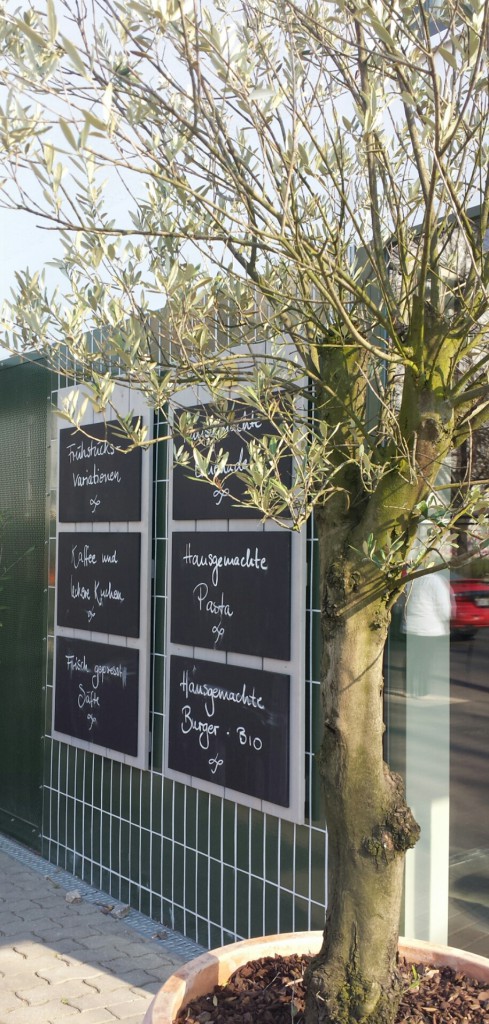 Frühstücks
Variationen
Kaffee und
leckere Kuchen
Frisch gepresste
Säfte
Hausgemachte
Hausgemachte
Pasta
Hausgemachte
Burger · BIO